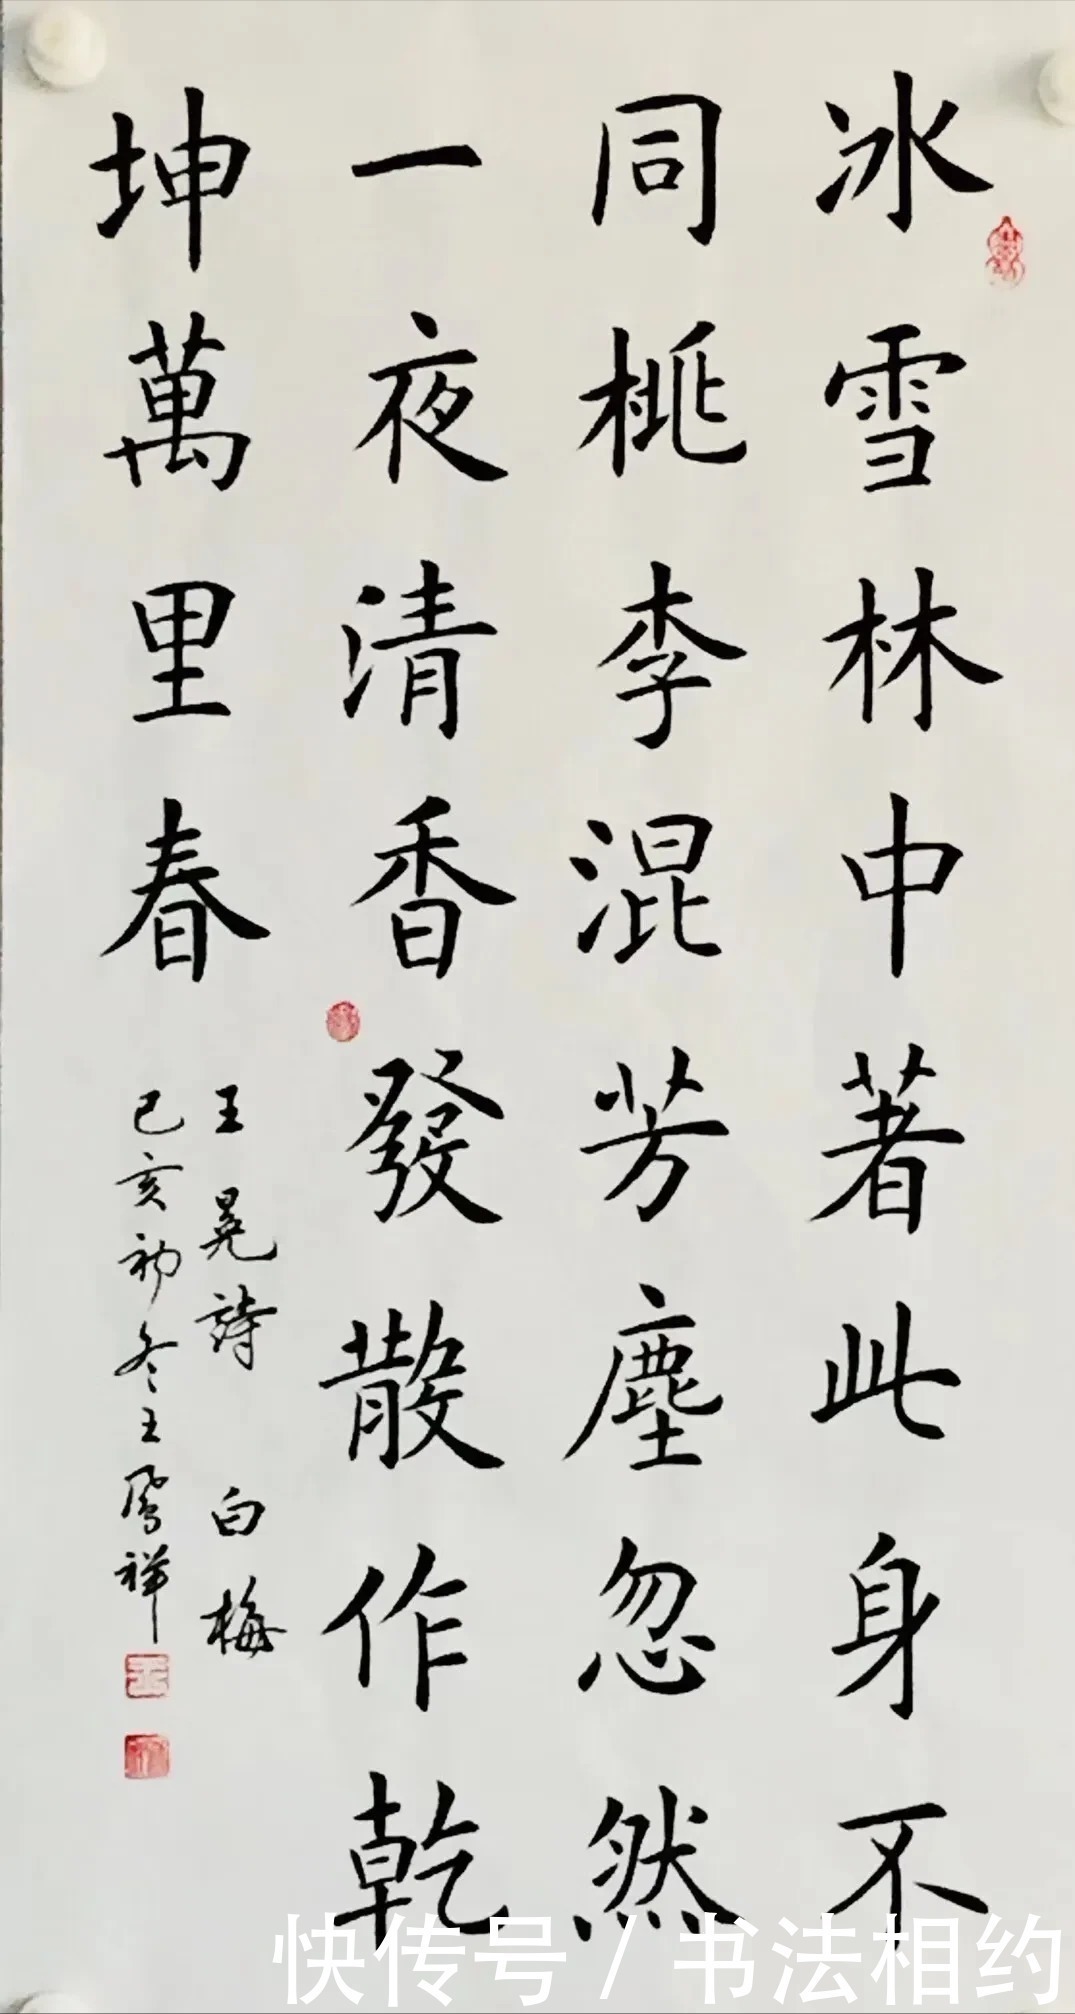 冰雪林中著此身不
同桃李混芳塵忽然
一夜清香發散作乾
坤萬里春
王晃詩 白梅
己亥初冬王鳳祥
快传号 / 书法相约